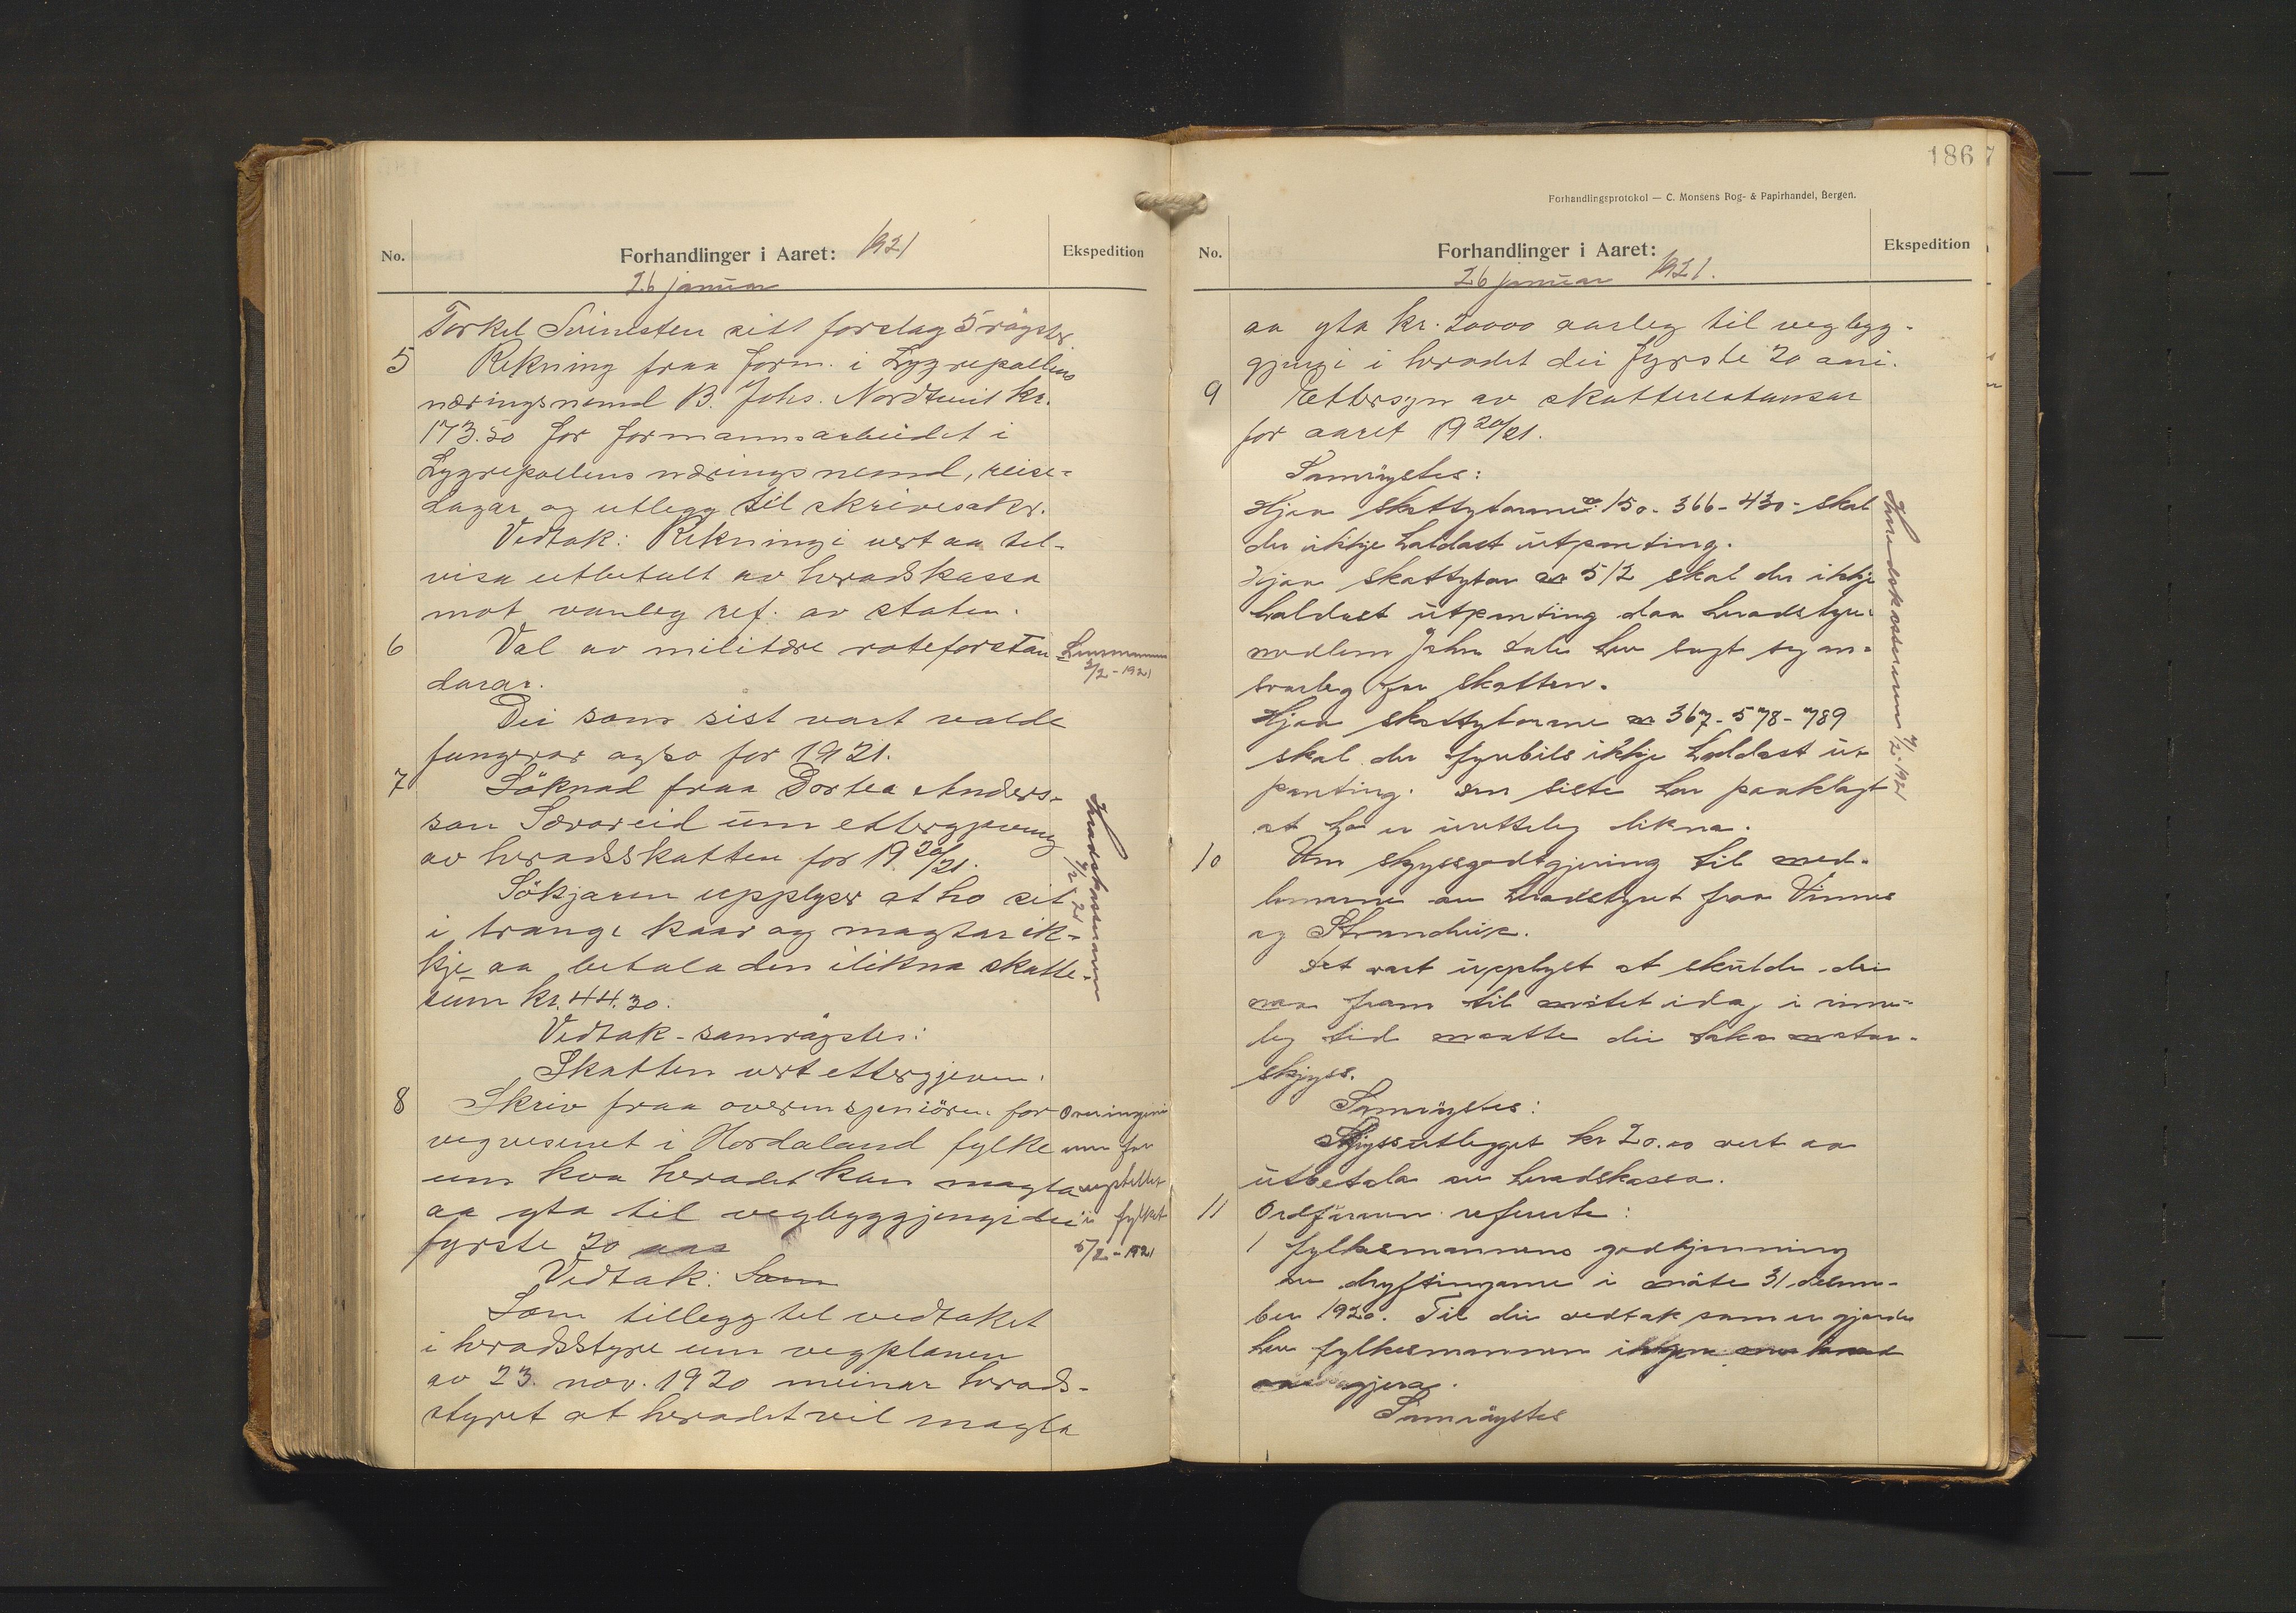 No.
Forhandlinger i Aaret: 1921
Ekspedition
26 januar
Torkel Svinesten sitt forslag 5 røyster
5 Rekning fraa form. i Lygrepollens
næringsnemd B. Johs. Nordtveit kr.
173.50 for formannsarbeidet i
Lygrepollens næringsnemd, reise-
dagar og utlegg til skrivesaker.
Vedtak: Rekningi vert aa til-
visa utbetalt av heradskassa
mot vanleg ref. av staten.
6 Val av militære roteforstan
darar.
Lensmannen
3/2-1921
Dei som sist vart valde
fungerar ogso for 1921.
7 Söknad fraa Dortea Anders-
son Sævareid um ettergjeving
av heradsskatten for 1920/21.
Sökjaren upplyser at ho sit
i trange kaar og magtar ik-
kje aa betala den ilikna skatte-
sum kr. 44.30.
Heradskasseraren
4/2-21
Vedtak - samrøystes:
Skatten vert ettergjeven.
8 Skriv fraa overingeniören for
vegvesenet i Hordaland fylke
um kva heradet kan magta
aa yta til vegbyggjingi dei
fyrste 20 aar
Overingeniö
ren for
i fylket
5/2-1921
Vedtak: Som
Som tillegg til vedtaket
i heradsstyre um vegplanen
av 23. nov. 1920 meinar herads-
styret at heradet vil magta
186
7
Forhandlingsprotokol — C. Monsens Bog- & Papirhandel, Bergen.
No.
Forhandlinger i Aaret:
Ekspedition
26 januar 1921.
aa yta kr. 20000 aarleg til vegbygg-
gjingi i heradet dei fyrste 20 aari.
9 Ettersyn av skatterestansar
for aaret 1920/21.
Samrøystes:
Hjaa skattytarane nr 150 - 366 - 430 - skal
der ikkje haldast utpanting.
Hjaa skattytar nr 512 skal der ikkje
haldast utpanting daa heradstyre-
medlem John Dale hev sagt seg an-
svarleg for skatten.
Hjaa skattytarane nr 367 - 578 - 789
skal der fyrebils ikkje haldast ut
panting. Den siste har paaklagt
at ho er uretteleg likna.
Heradskasseraren 4/2-1921
10 Um skyssgodtgjering til med-
lemene av heradstyret fraa Vinnes
og Strandvik.
Det vart upplyst at skulde dei
naa fram til møtet idag i rime-
leg tid maatte dei taka motor-
skyss.
Samrøystes:
Skyssutlegget kr 20.00 vert aa
utbetala av heradskassa.
11 Ordføraren referete:
1 fylkesmannens godkjenning
av dryftingane i møte 31 desem-
ber 1920. Til dei vedtak som er gjorde
hev fylkesmannen ikkje merknad
aa gjera.
Samrøystes